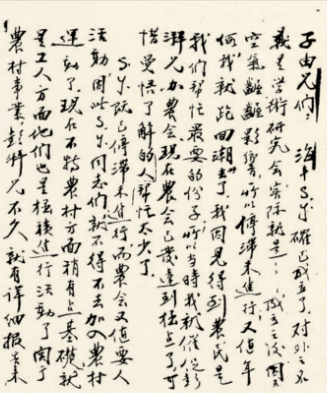 子由兄们：海丰S.Y.确已成立了，对外之名
义是学术研究会，实际就是：成立之後因
空气龌龊影响所以停滞未进行，又值年
我就跑回潮去了，我因见得到农民是
我们帮忙最要的份子，所以当时我就催促彭
湃兄加农会，现在农会已发达到极点了，可
惜觉悟了解的人，帮忙太少了
S.Y.既已停滞未进行，而农会又值要人
活动，因此S.Y.同志们就不得不去加入农村
运动了，现在不特农村方面稍有点基础，就
是工人方面他们也是极积进行活动了，关于
农村事业，彭湃兄不久就有详细报告来